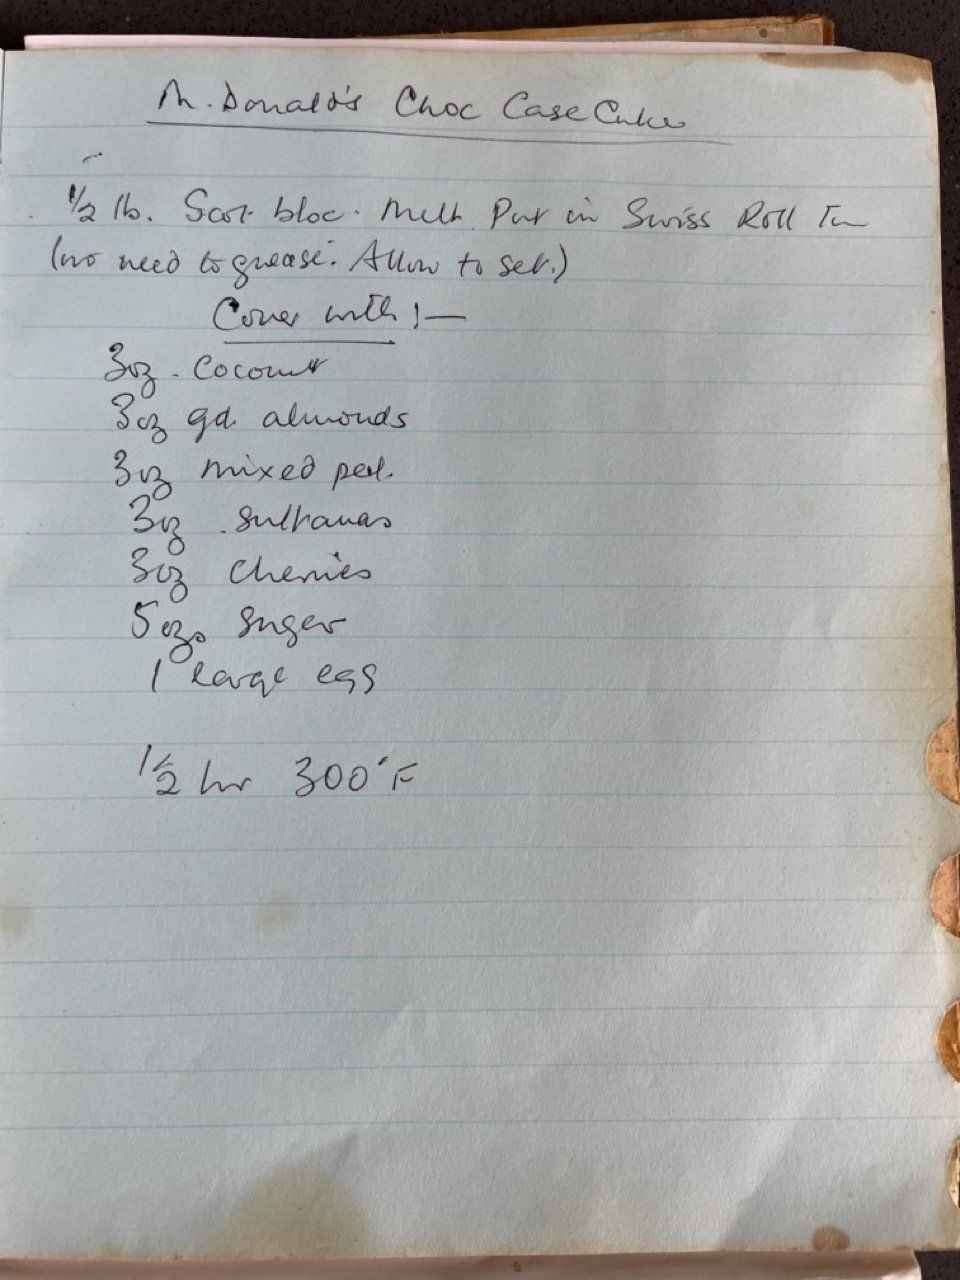 M. Donald's Choc Case Cake
1/2 lb. Scot bloc. Melt. Put in Swiss Roll Tin
(no need to grease. Allow to set.)
Cover with :—
3oz. Coconut
3oz gd. almonds
3oz mixed peel.
3oz sultanas
3oz cherries
5ozs sugar
1 large egg
1/2 hr 300°F